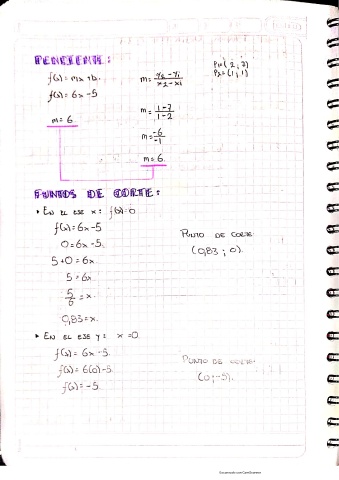 PENDIENTE:
f(x) = mx + b.
f(x) = 6x - 5
m = 6
m = y2 - y1 / x2 - x1
m = 1 - 7 / 1 - 2
m = -6 / -1
m = 6.
P1 = (2, 7)
P2 = (1, 1)
PUNTOS DE CORTE:
• EN EL EJE x: f(x) = 0
f(x) = 6x - 5
0 = 6x - 5.
5 + 0 = 6x
5 = 6x
5/6 = x.
0,83 = x.
PUNTO DE CORTE:
(0,83 ; 0).
• EN EL EJE y: x = 0.
f(x) = 6x - 5.
f(x) = 6(0) - 5
f(x) = -5.
PUNTO DE CORTE:
(0 ; -5).